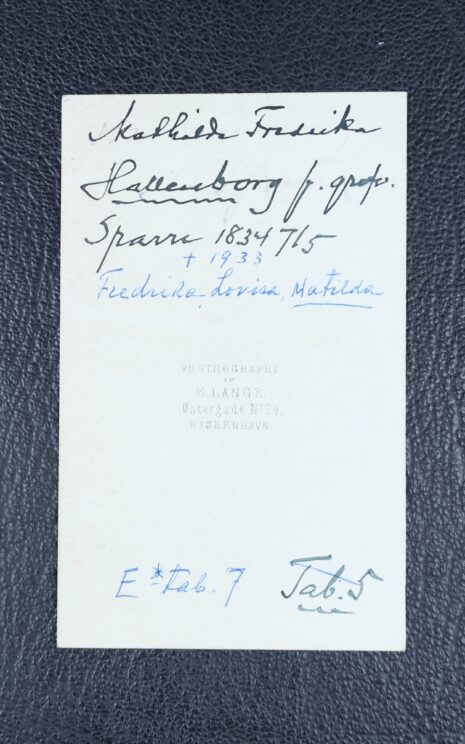 Mathilda Fredrika
Hallenborg f. grefv.
Sparre 1834 7/5
† 1933
Fredrika, Lovisa, Matilda
PHOTHOGRAPHI
AF
E. LANGE.
Østergade No 24,
KJØBENHAVN
E* tab. 7
Tab. 5